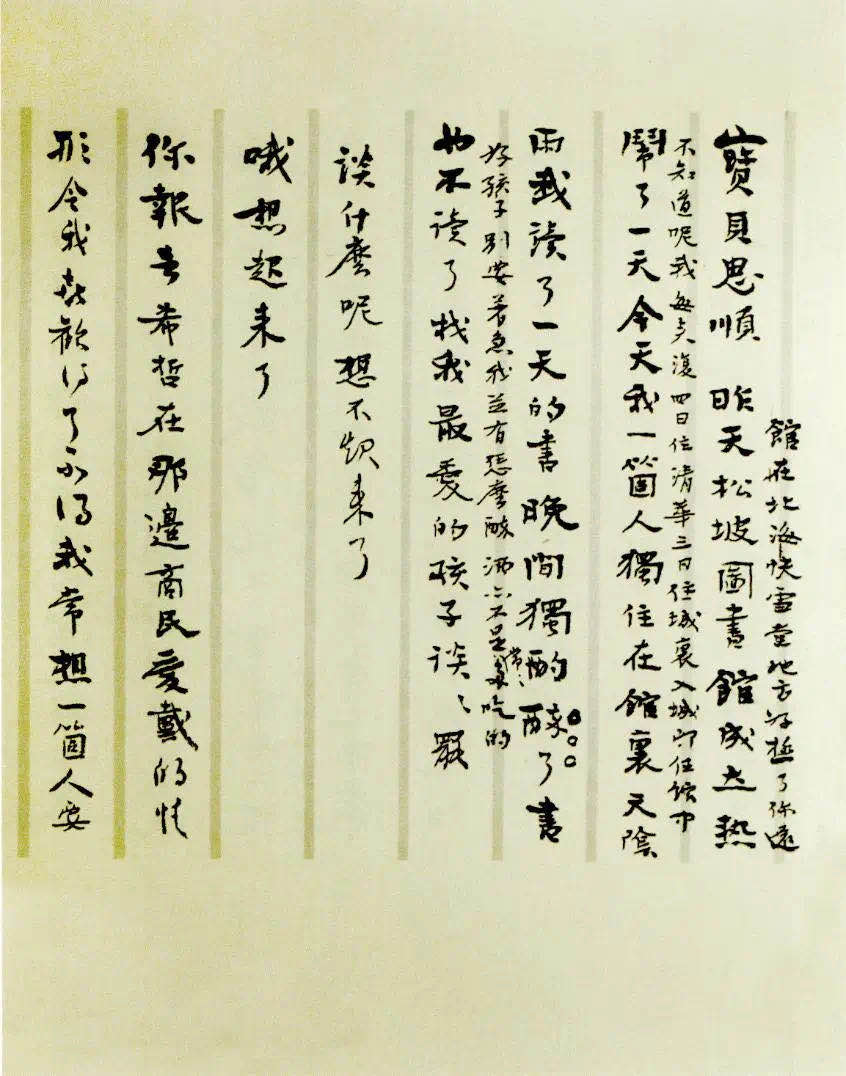 館在北海快雪堂地方好極了你還
寶貝思順 昨天松坡圖書館成立熱
不知道呢我每來復四日住清華三日住城裏入城即住館中
鬧了一天今天我一箇人獨住在館裏天陰
雨我讀了一天的書晚間獨酌醉了書
好孩子別要著急我並冇怎麼醉酒亦不是常〻多吃的
也不讀了找我最愛的孩子談〻罷
談什麼呢想不起來了
哦想起來了
你報告希哲在那邊商民愛戴的情
形令我喜歡得了不得我常想一箇人要